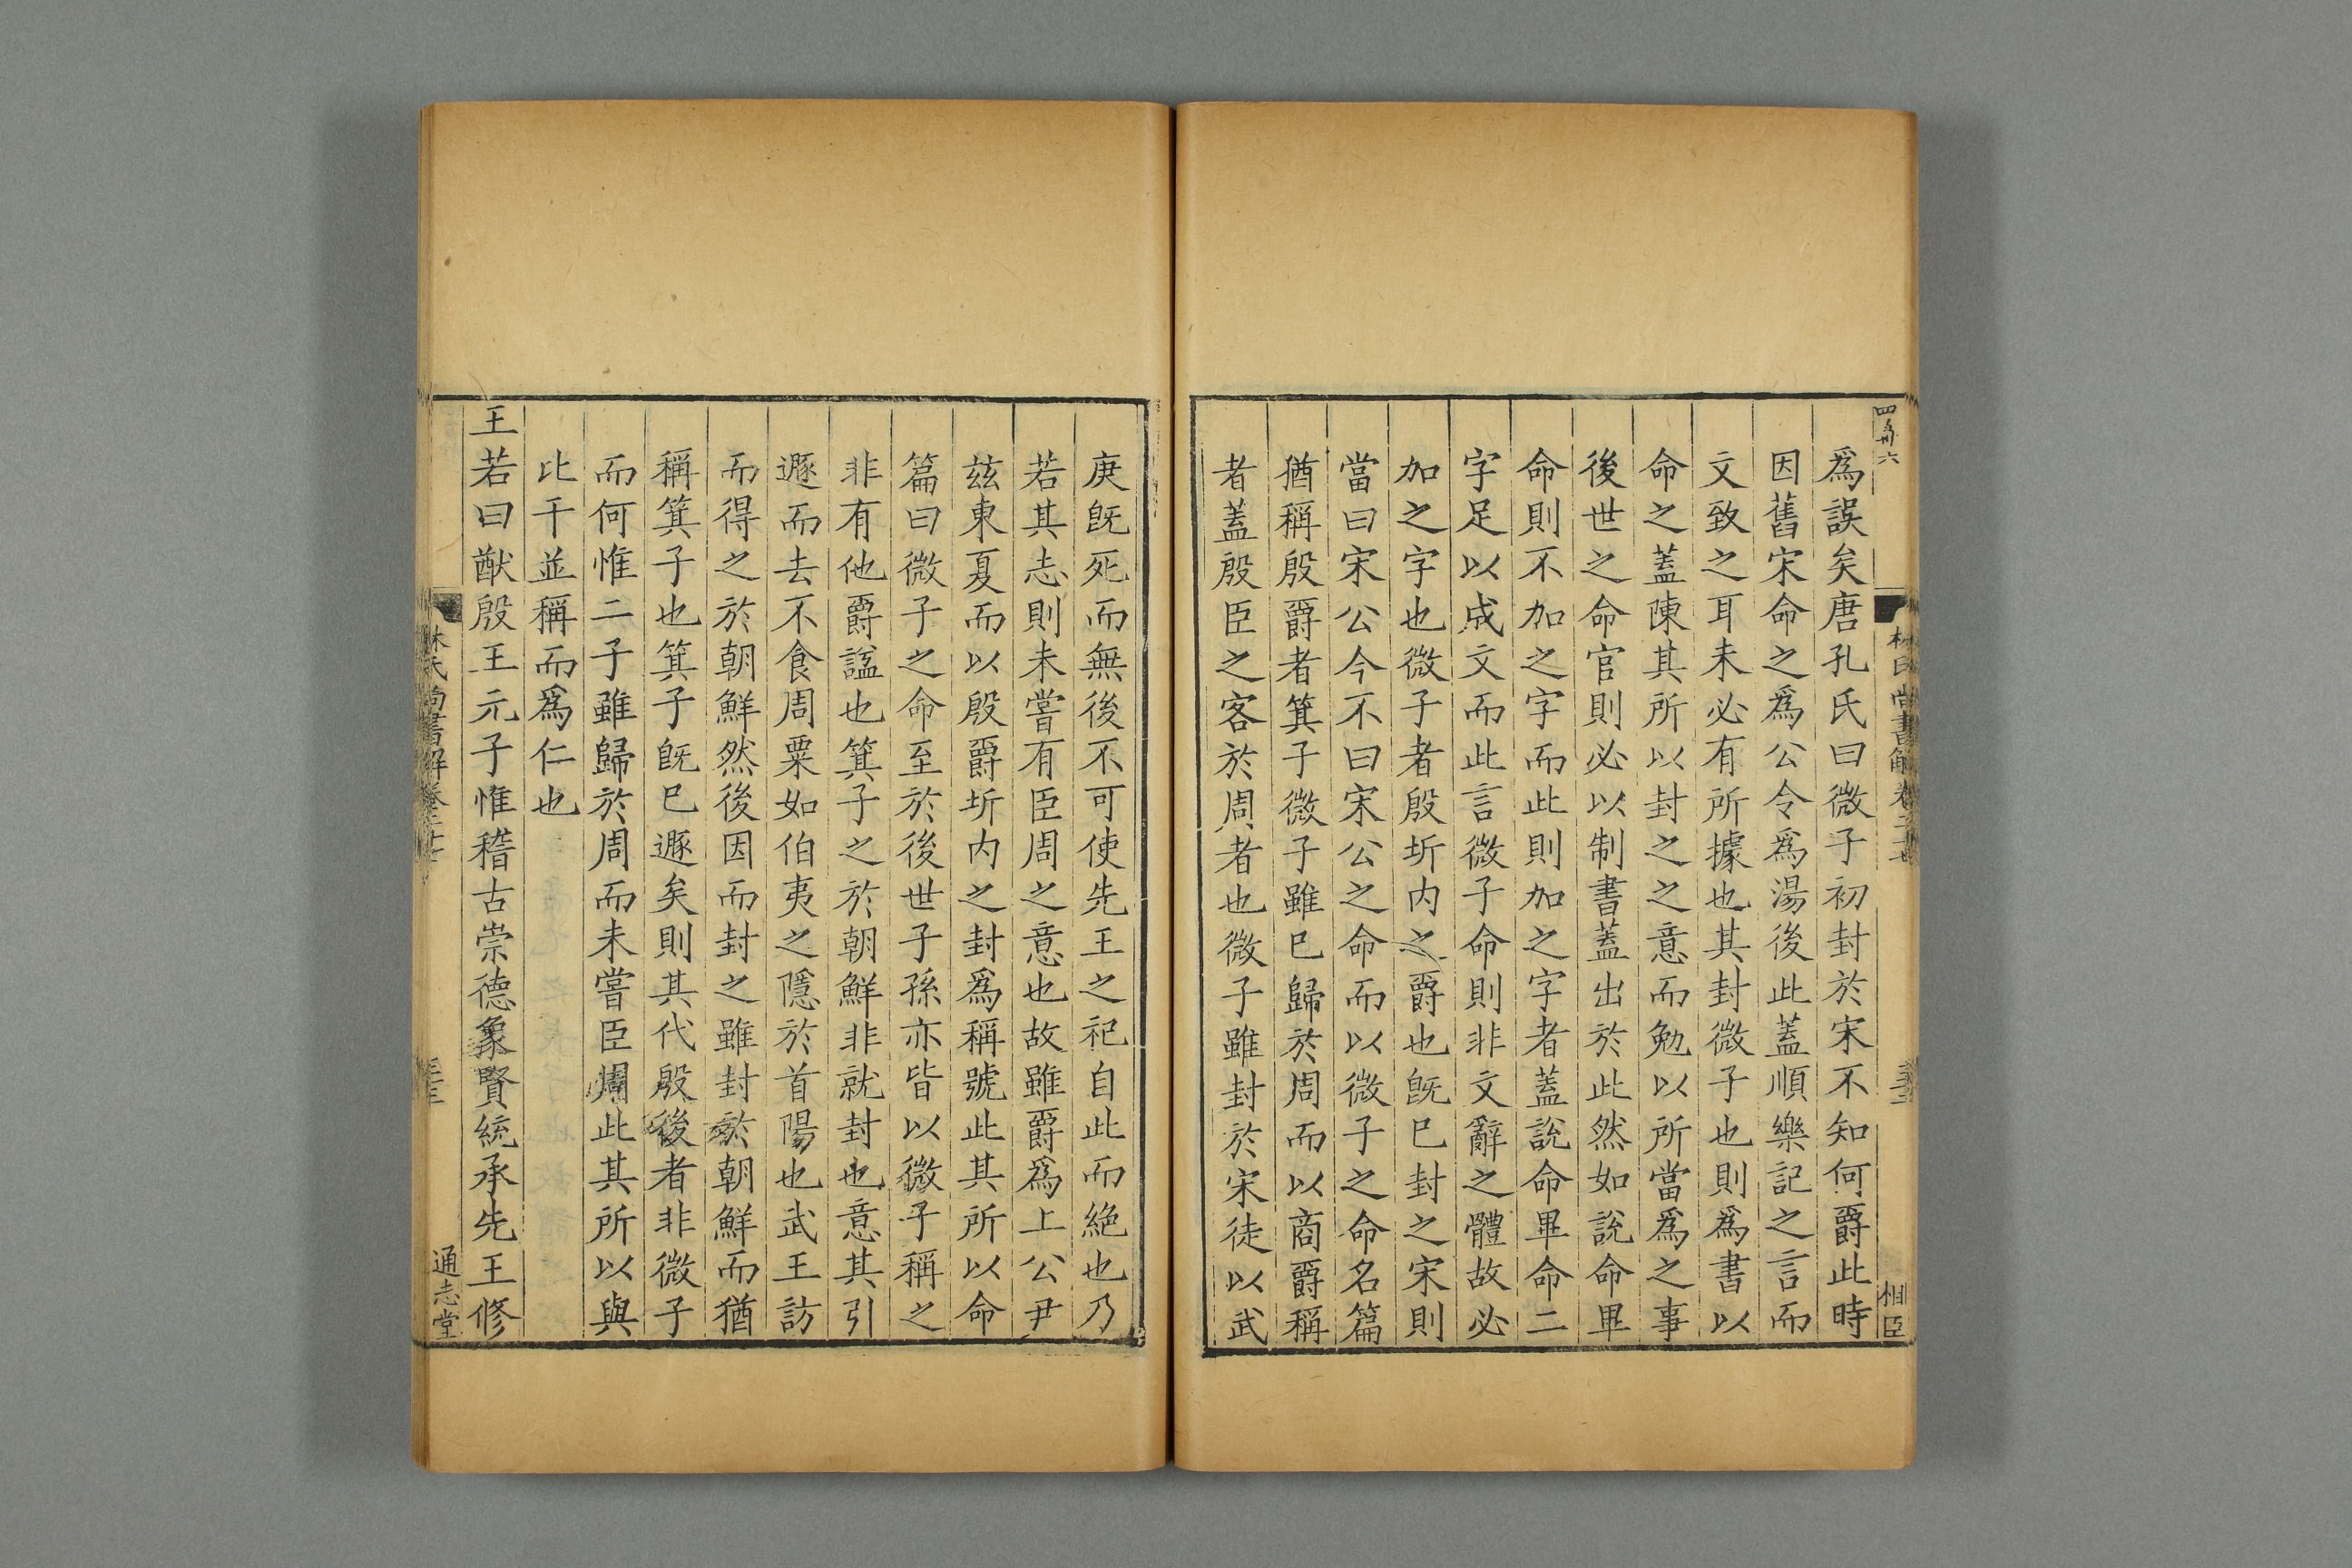 爲誤矣唐孔氏曰微子初封於宋不知何爵此時
因舊宋命之爲公令爲湯後此蓋順樂記之言而
文致之耳未必有所據也其封微子也則爲書以
命之蓋陳其所以封之之意而勉以所當爲之事
後世之命官則必以制書蓋出於此然如說命畢
命則不加之字而此則加之字者蓋說命畢命二
字足以成文而此言微子命則非文辭之體故必
加之字也微子者殷圻内之爵也旣已封之宋則
當曰宋公今不曰宋公之命而以微子之命名篇
猶稱殷爵者箕子微子雖已歸於周而以商爵稱
者蓋殷臣之客於周者也微子雖封於宋徒以武
庚旣死而無後不可使先王之祀自此而絶也乃
若其志則未嘗有臣周之意也故雖爵爲上公尹
茲東夏而以殷爵圻内之封爲稱號此其所以命
篇曰微子之命至於後世子孫亦皆以微子稱之
非有他爵諡也箕子之於朝鮮非就封也意其引
遯而去不食周粟如伯夷之隱於首陽也武王訪
而得之於朝鮮然後因而封之雖封於朝鮮而猶
稱箕子也箕子旣已遯矣則其代殷後者非微子
而何惟二子雖歸於周而未嘗臣周此其所以與
比干並稱而爲仁也
王若曰猷殷王元子惟稽古崇德象賢統承先王修
林氏尚書解
通志堂
相臣